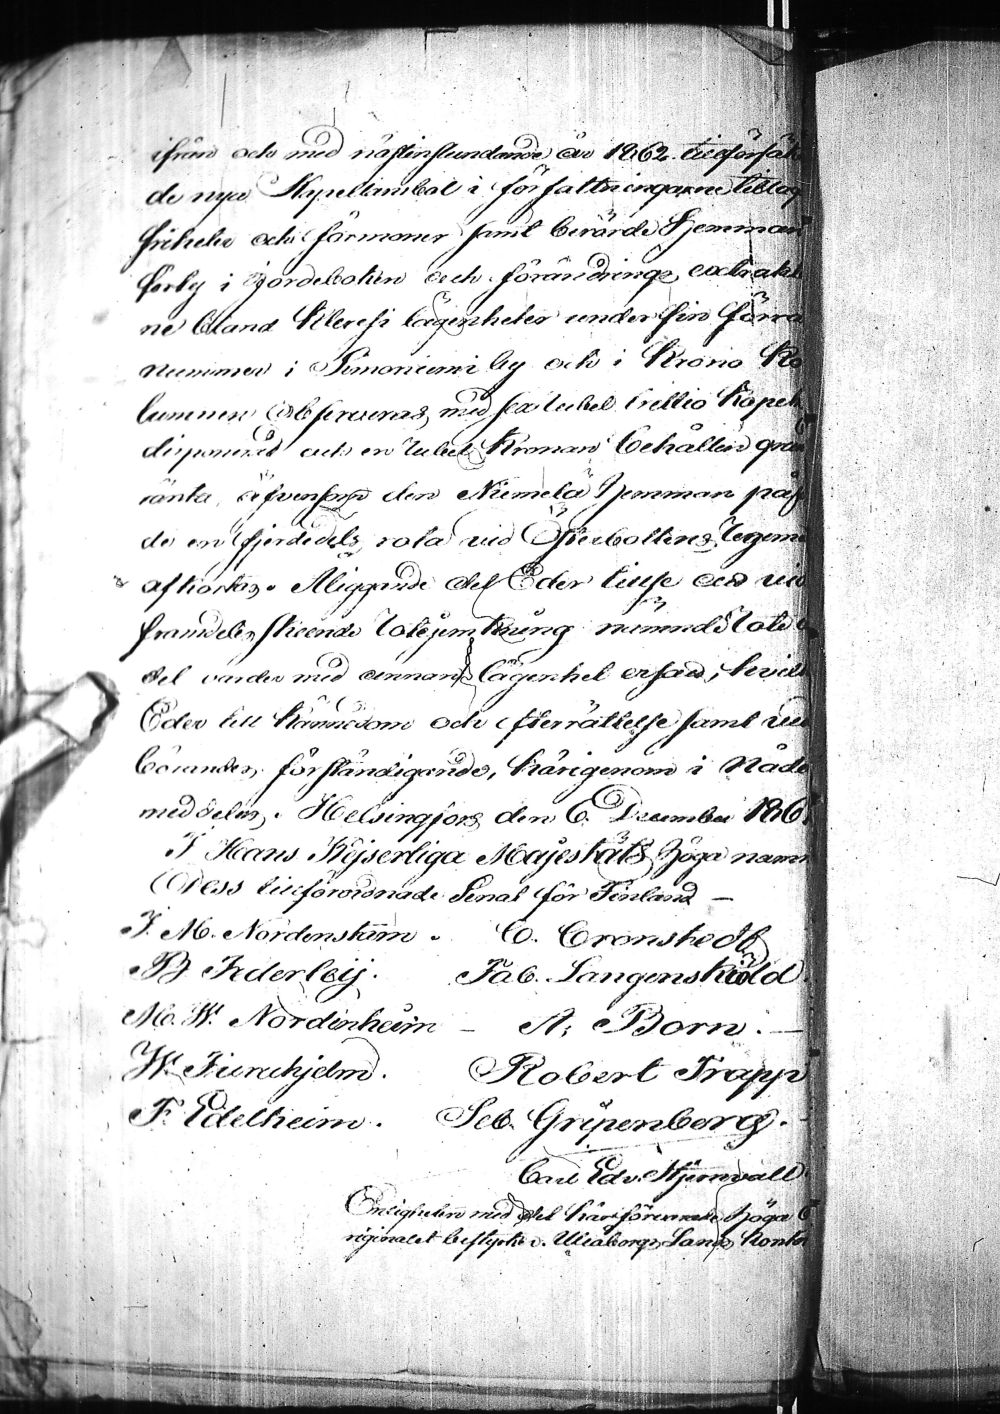 ifrån och med nästinstundande år 1862 tillförsäk
de nya Skyseltimbal i författningarne tillag
friheter och förmoner samt berörde Hemman
förby i Jordeboken och förändrings extrakt
ne bland Kleresi lägenheter under sin förra
nummer i Simoniemi by och i Krono Ko
lumnen observeras, med sex rubel trettio Kopek
disponerad och en rubel Kronan behållen grun
ränta, äfvensom den Niemelä Hemman påf
de en fjerdedels rota vid Österbottens Regeme
afkortas. Åliggande det Eder tillse att vid
framdeles skeende Rotejemkning nämnde Rote
del varder med annan lägenhet ersatt, hvilk
Eder till kännedom och efterrättelse samt ved
börandes förständigande, härigenom i Nåde
meddelas. Helsingfors den 6 December 1861
I Hans Kejserliga Majestäts Höga namn
Dess tillförordnade Senat för Finland —
J. M. Nordenstam. C. Cronstedt
B Federley. Fab. Langenskiöld
M. W. Nordenheim — A. Born. —
W. Furuhjelm. Robert Trapp
F. Edelheim. Seb. Gripenberg.
Carl Edv. Stjernvall
Enligheten med det härförvarade Höga O
riginalet bestyrker. Uleåborgs Lands Kontor